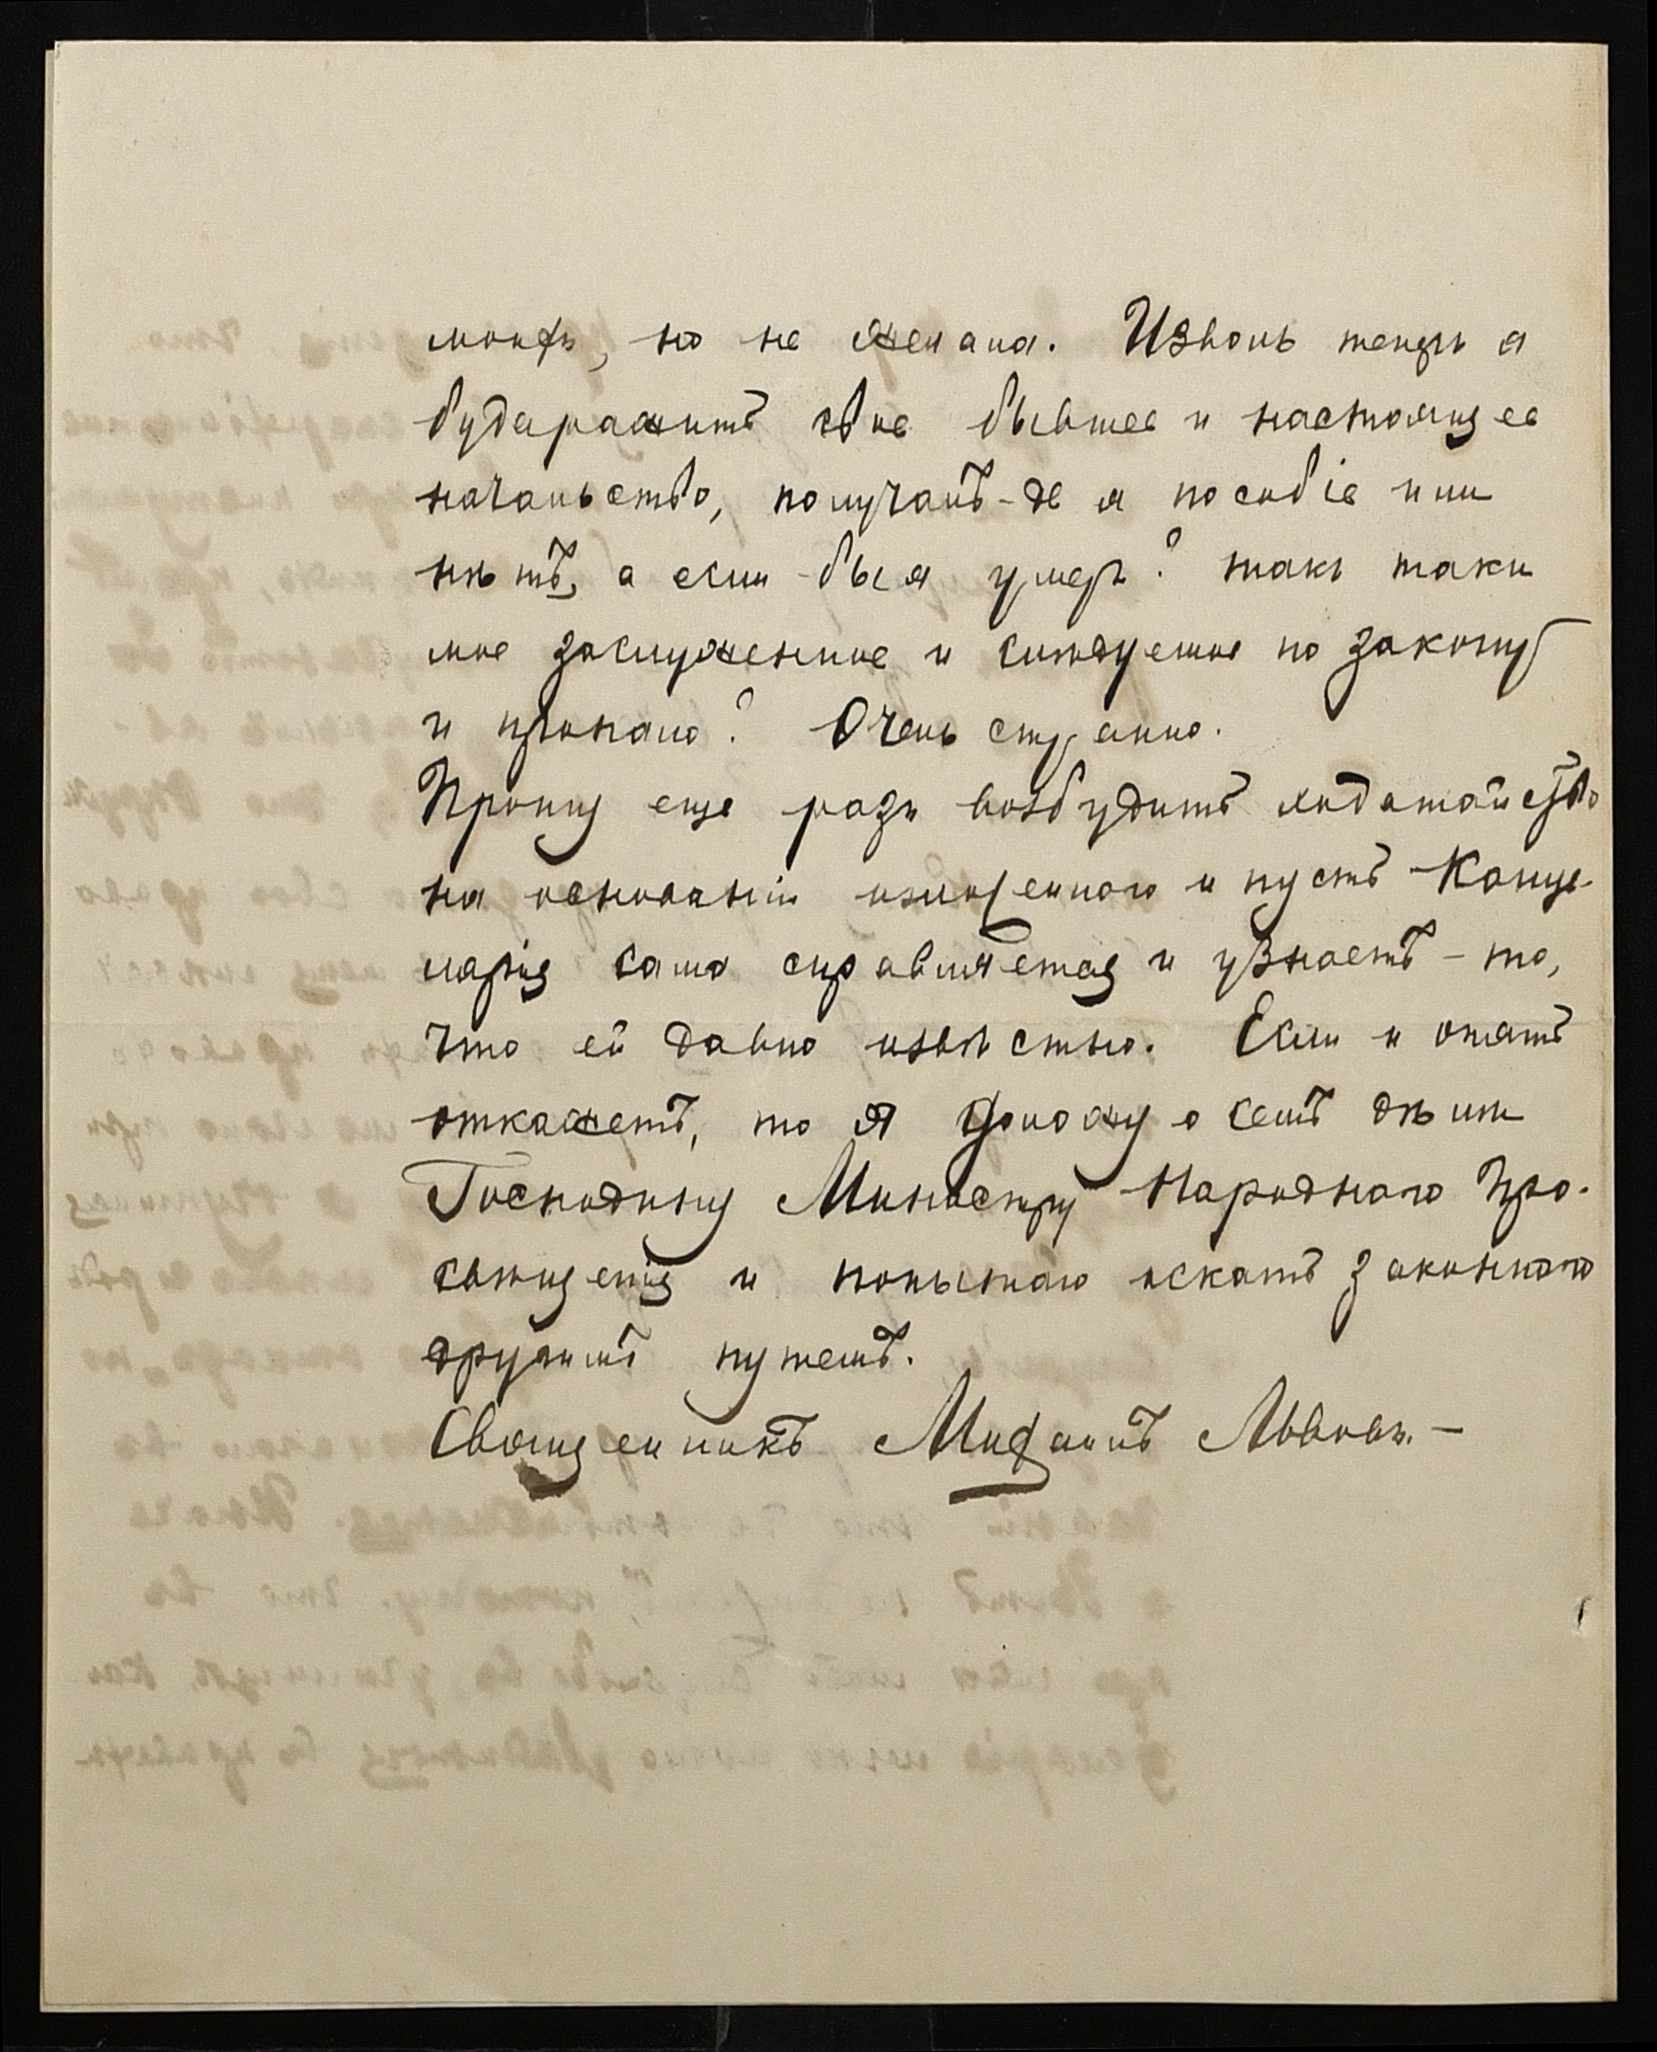 но не желала. Изволь теперь я
будоражить свое бывшее и настоящее
начальство, получалъ-де я пособіе или
нѣтъ, а если-бы я умеръ? такъ таки
мое заслуженное и слѣдуемое по закону
и пропало? Очень странно.
Прошу еще разъ возбудить ходатайство
на основаніи изложеннаго и пусть Канце-
лярія сама справляется и узнаетъ - то,
что ей давно извѣстно. Если и опять
откажетъ, то я доложу о семъ дѣлѣ
Господину Министру Народнаго Про-
свѣщенія и попытаю искать законнаго
другимъ путемъ.
Священникъ Михаилъ Львовъ. -